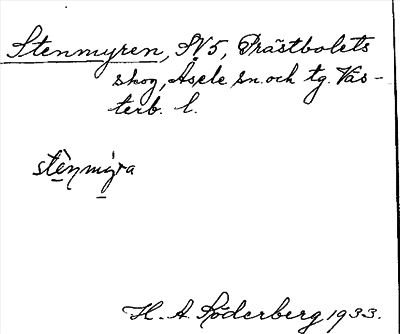 Stenmyren, S.V 5, Prästbolets
skog, Åsele sn. och tg. Väs-
terb. l.
stènmýra
H. A. Röderberg 1933.